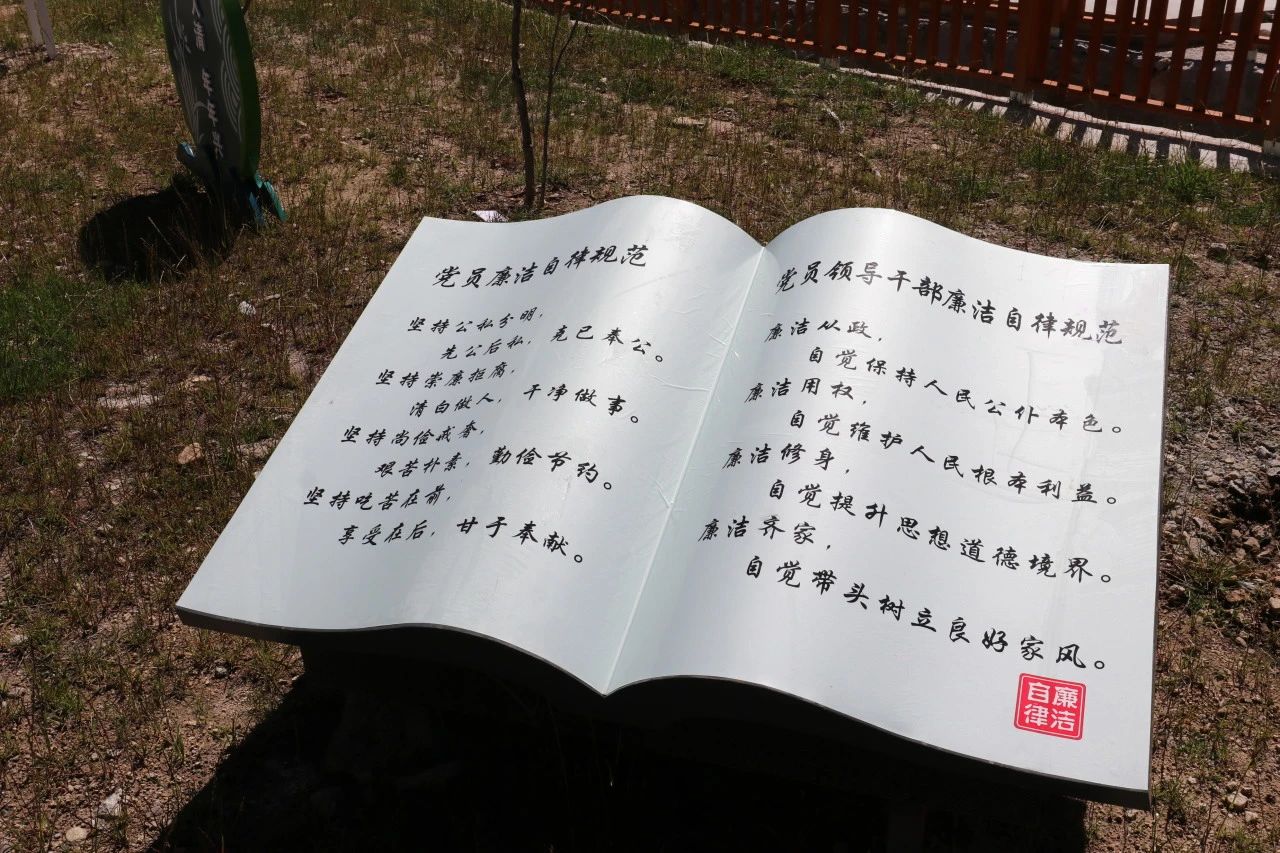 党员廉洁自律规范
坚持公私分明，
先公后私，克己奉公。
坚持崇廉拒腐，
清白做人，干净做事。
坚持尚俭戒奢，
艰苦朴素，勤俭节约。
坚持吃苦在前，
享受在后，甘于奉献。
党员领导干部廉洁自律规范
廉洁从政，
自觉保持人民公仆本色。
廉洁用权，
自觉维护人民根本利益。
廉洁修身，
自觉提升思想道德境界。
廉洁齐家，
自觉带头树立良好家风。
廉洁
自律